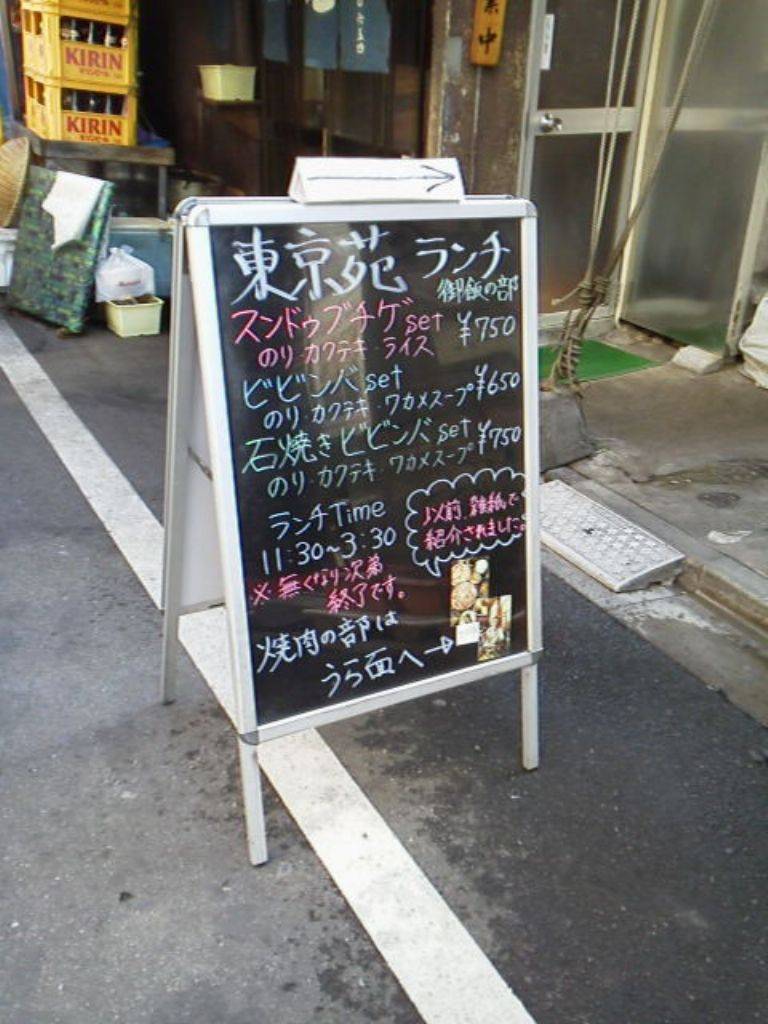 KIRIN
KIRIN
東京苑 ランチ
御飯の部
スンドゥブチゲset ¥750
のり・カクテキ・ライス
ビビンバset ¥650
のり・カクテキ・ワカメスープ
石焼きビビンバset ¥750
のり・カクテキ・ワカメスープ
ランチTime
11:30~3:30
※無くなり次第
終了です。
以前、雑紙で
紹介されました。
焼肉の部は
うら面へ→
中